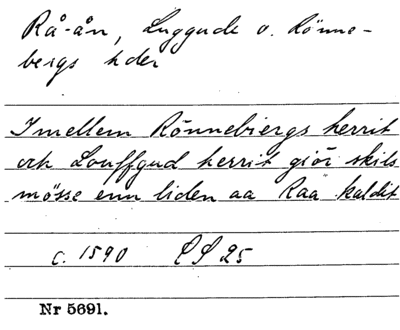 Rå-ån, Luggude o. Rönne-
bergs hder
Imellem Rönnebiergs herrit
och Louffgud herrit giör skils
mösse enn liden aa Raa kaldit
c. 1590 PS 25
Nr 5691.